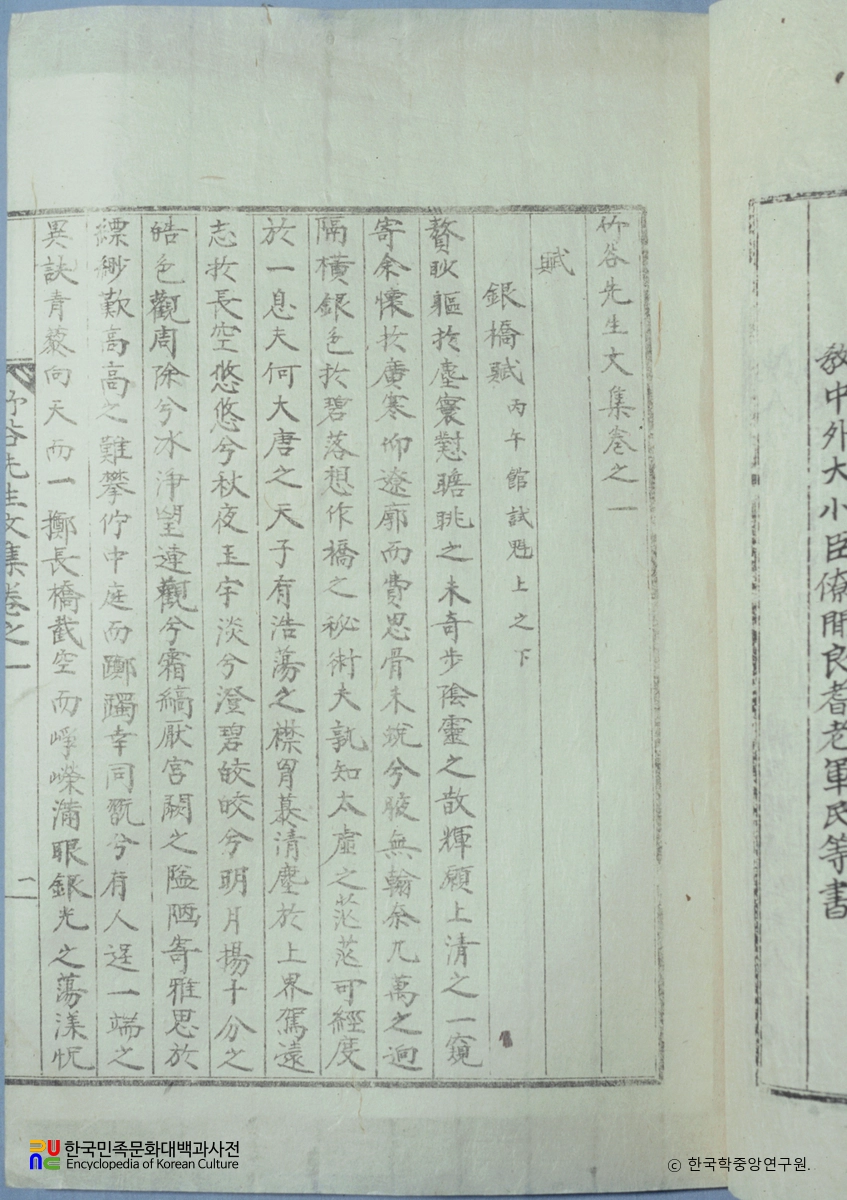 敎中外大小臣僚閒良耆老軍民等書
竹谷先生文集卷之一
賦
銀橋賦 丙午館試魁上之下
贅耿軀於塵寰對瞻眺之未奇步陰靈之散輝願上清之一窺
寄余懷於廣寒仰遼廓而費思骨未銳兮腋無翰奈九萬之迥
隔橫銀色於碧落想作橋之秘術夫孰知太虛之茫茫可經度
於一息夫何大唐之天子有浩蕩之襟胷慕清塵於上界駕遠
志於長空悠悠兮秋夜玉宇淡兮澄碧皎皎兮明月揚十分之
皓色觀周除兮氷淨望連觀兮霜縞厭宮闕之隘陋寄雅思於
縹緲歎高高之難攀佇中庭而躑躅幸同翫兮有人逞一端之
異訣靑藜向天而一擲長橋截空而崢嶸滿眼銀光之蕩漾怳
竹谷先生文集卷之一
一
한국민족문화대백과사전
Encyclopedia of Korean Culture
ⓒ 한국학중앙연구원.